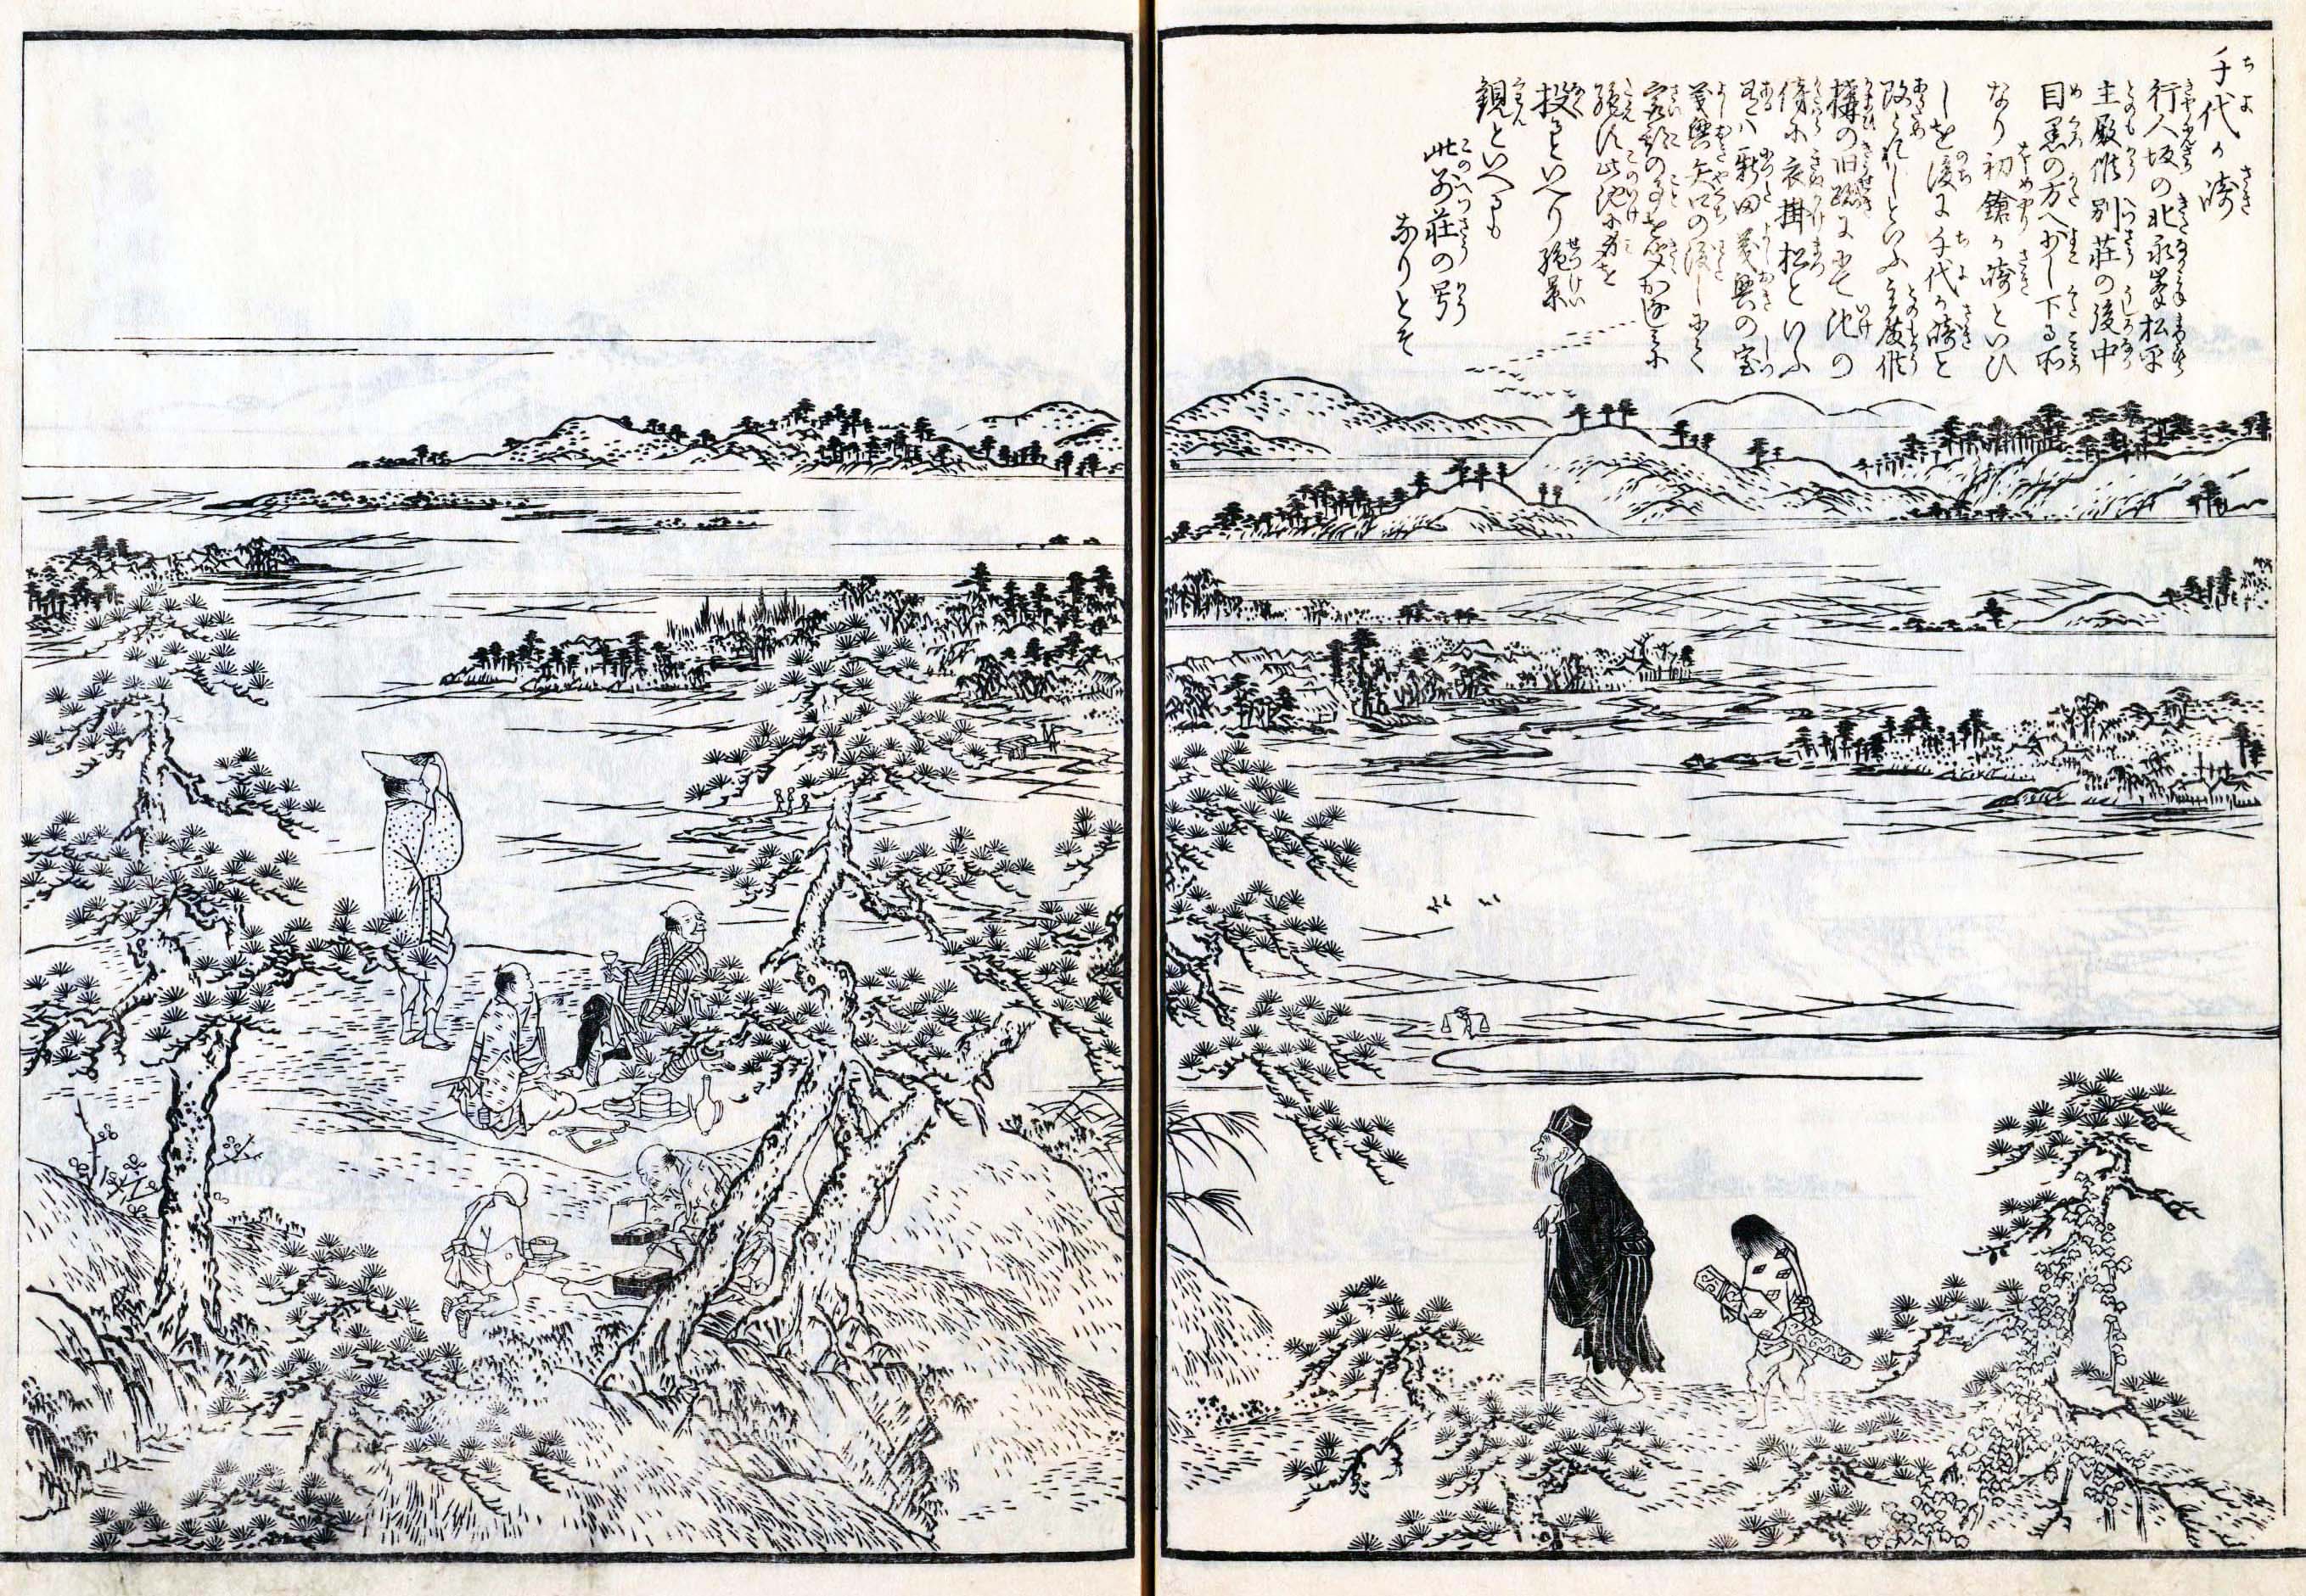 千代か崎
行人坂の北永峯松平
主殿侯別荘の後中
目黒の方へ少し下る所
なり初鎗か崎といひ
しを後に千代か崎と
改られしといふ主殿侯
構の旧跡にて池の
傍に衣掛松といふ
あり是ハ新田義興の室
義興矢口の渡しにて
害の事をきゝかなしみに
絶す此池に身を
投るといへり絶景
観といへるも
此別荘の号
なりとそ